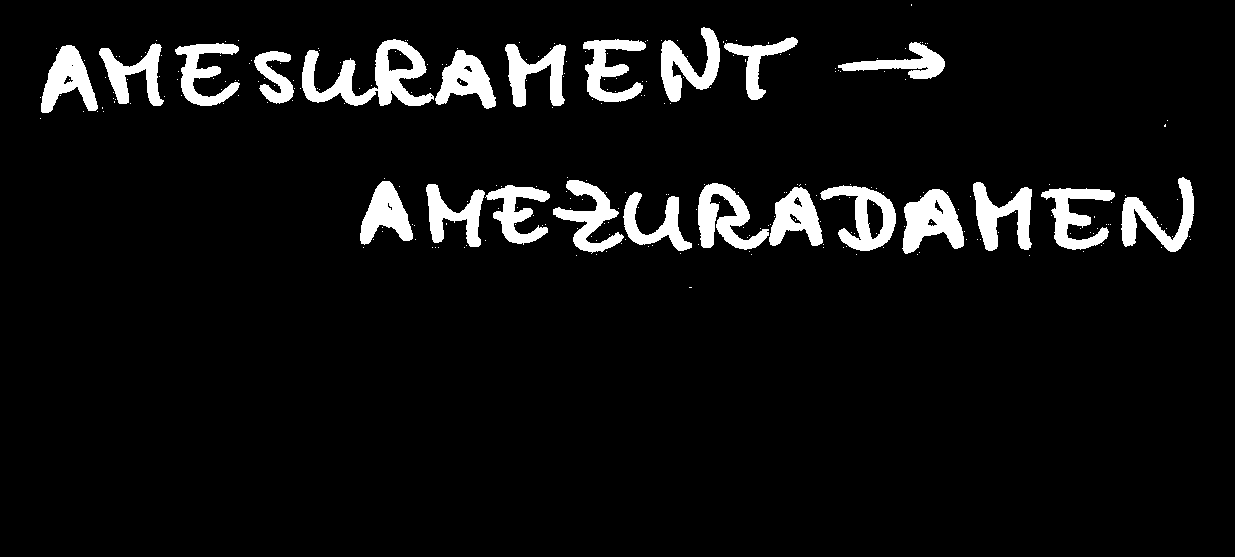 AMESURAMENT →
AMEZURADAMEN